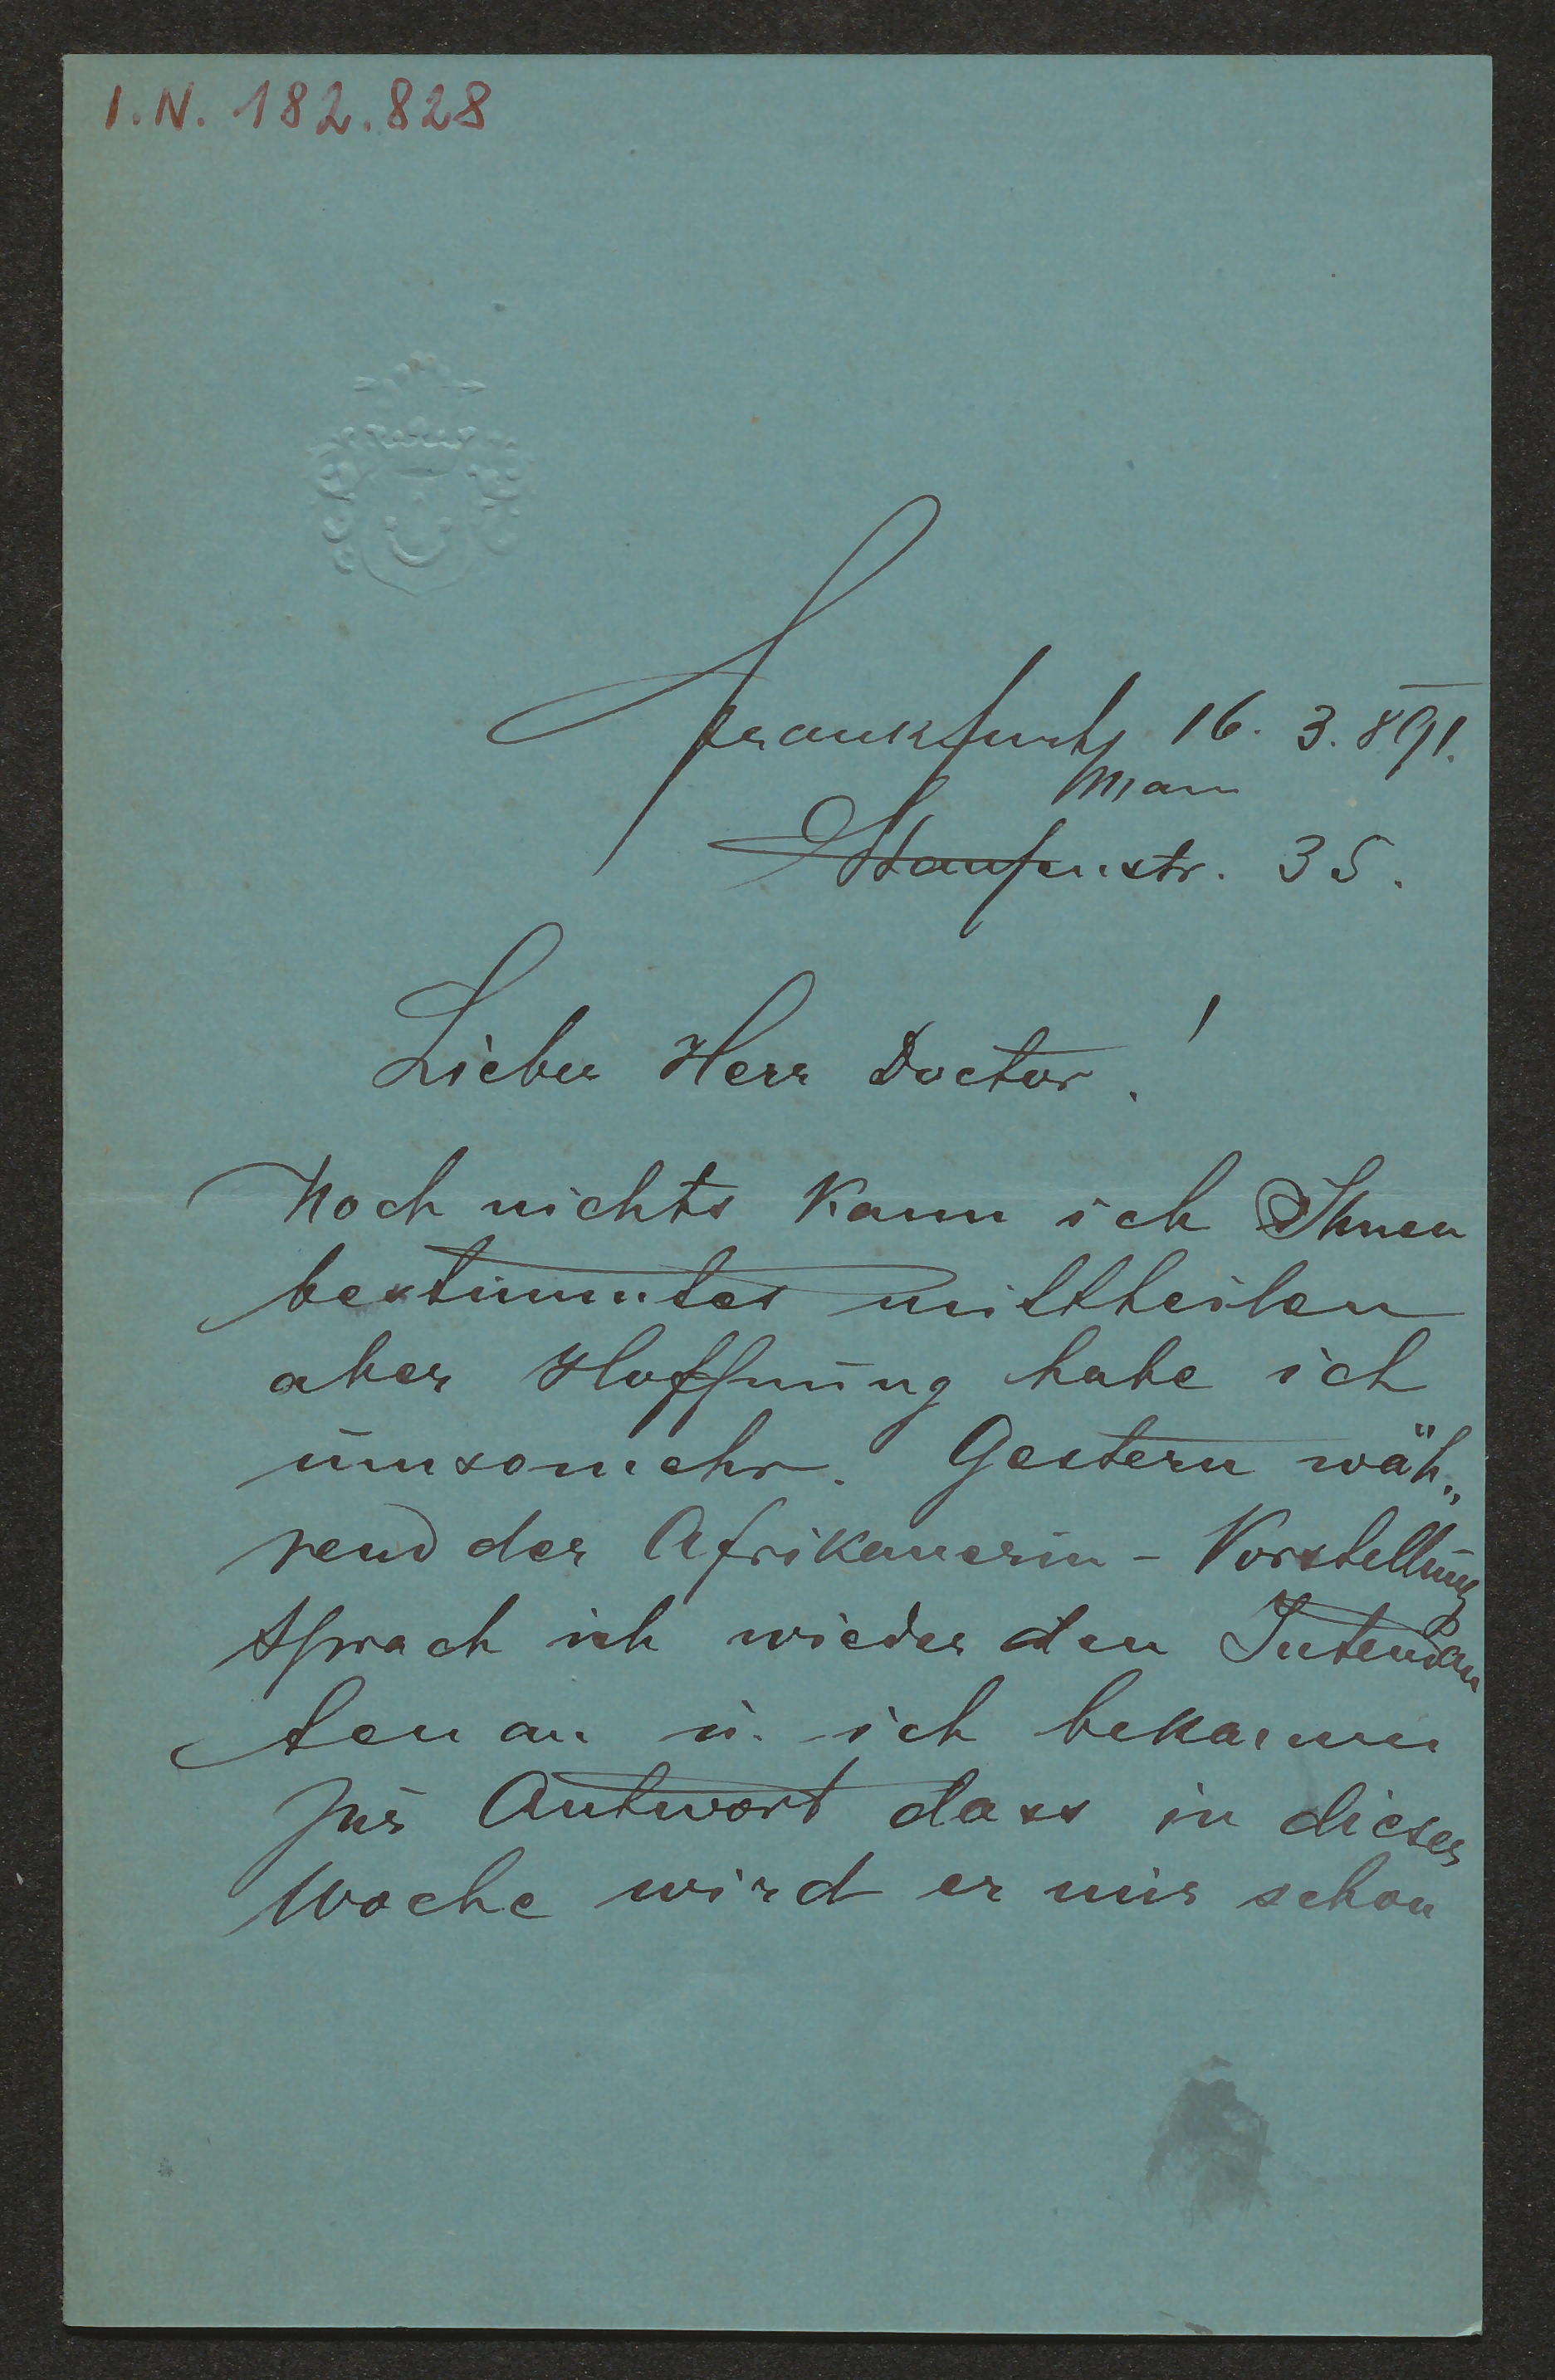 I.N. 182.828
Frankfurt/ 16. 3. 891.
Main
Staufenstr. 35.
Lieber Herr Doctor!
Noch nichts kann ich Ihnen
bestimmtes mittheilen
aber Hoffnung habe ich
umsomehr. Gestern wäh„
rend der Afrikanerin - Vorstellung
sprach ich wieder den Intendan
ten an u. ich bekamm
zur Antwort dass in dieser
Woche wird er mir schon